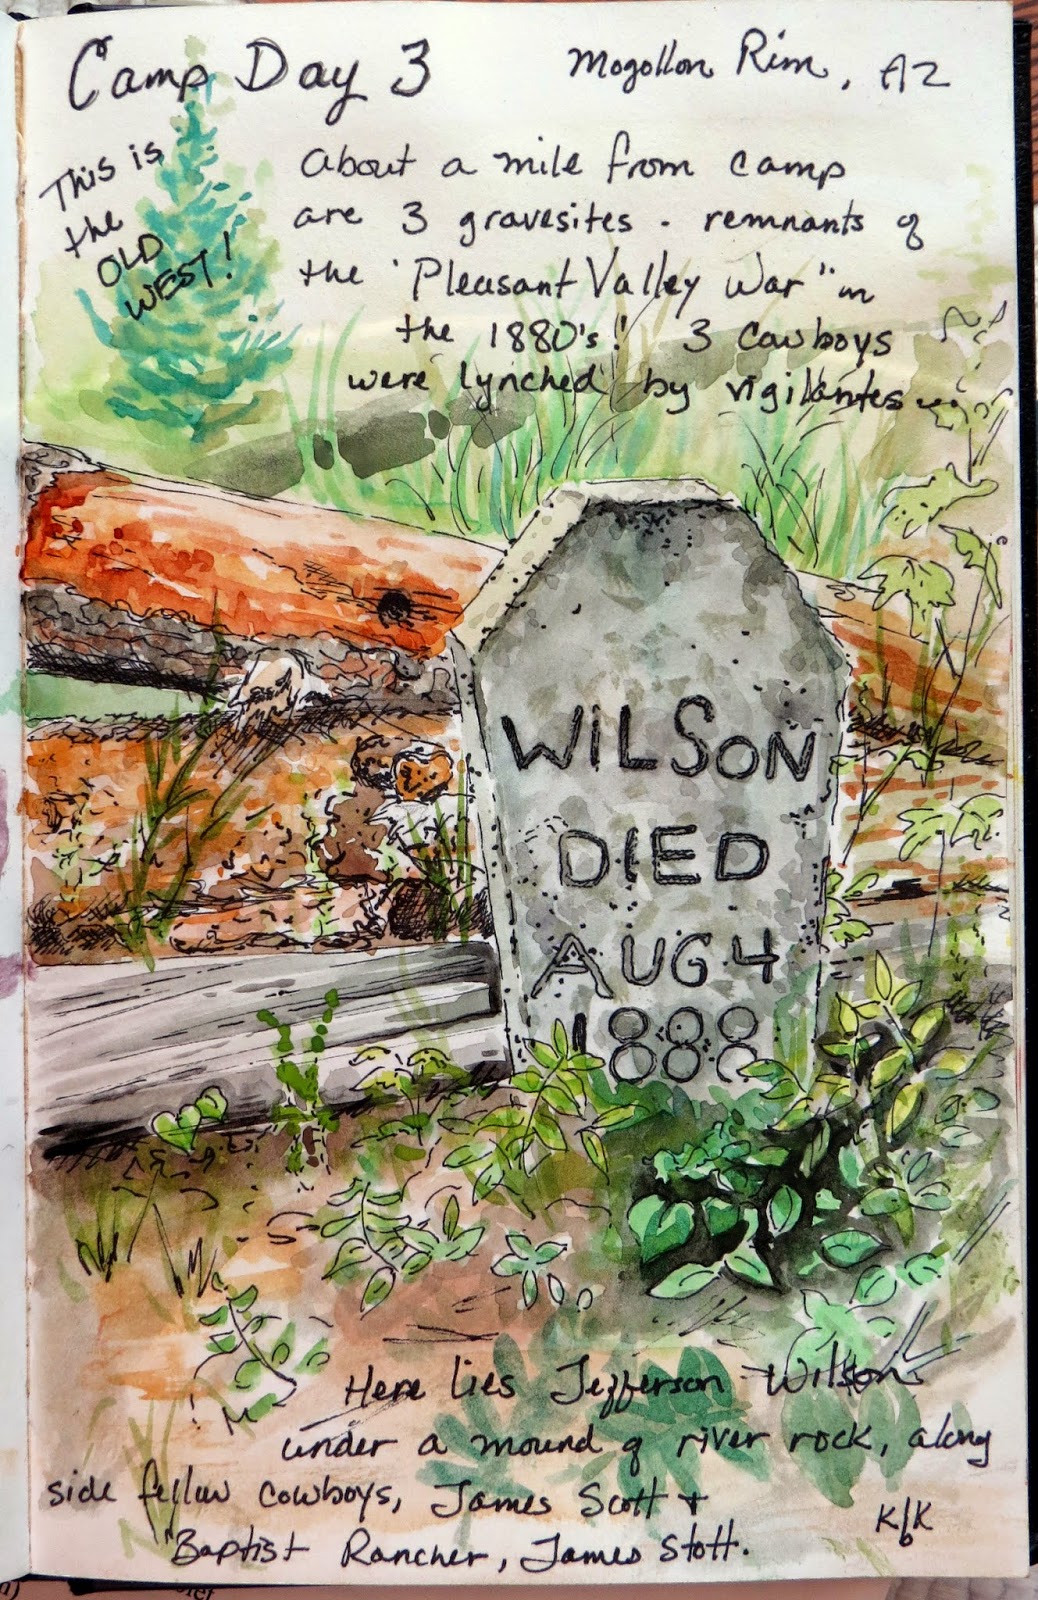 Camp Day 3
Mogollon Rim, AZ
This is
the
OLD
WEST!
About a mile from camp
are 3 gravesites - remnants of
the "Pleasant Valley War" in
the 1880's! 3 cowboys
were lynched by vigilantes...
WiLSON
DIED
AUG 4
1888
Here lies Jefferson Wilson
under a mound of river rock, along
side fellow cowboys, James Scott +
Baptist Rancher, James Stott.
KbK